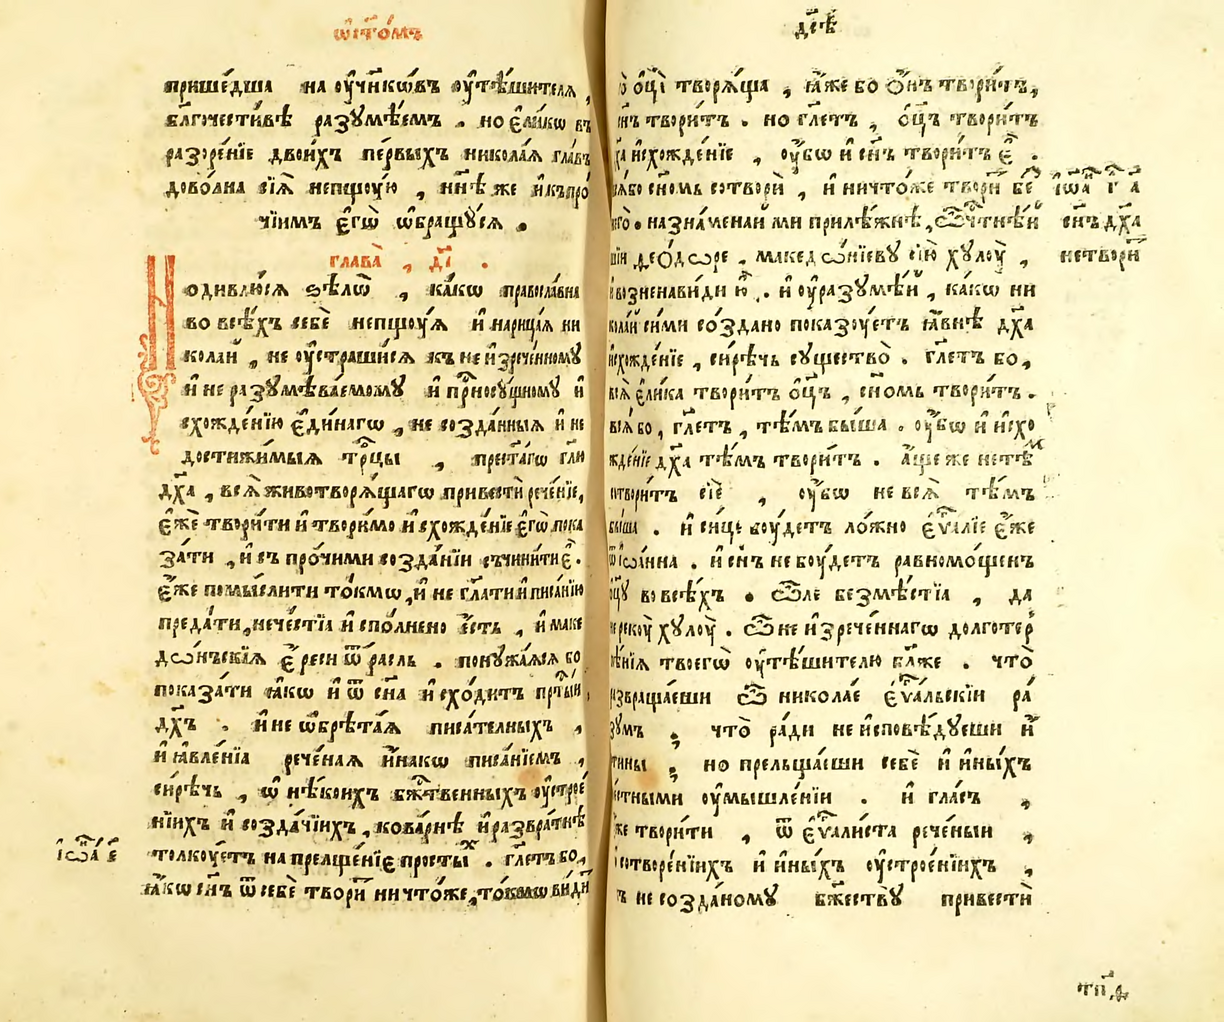 ѡ҆ ст҃о́мъ
прише́дша на оу҆чн҃икѡ́въ оу҆тѣ́шителѧ ,
бл҃гочести́вѣ разꙋмѣ́емъ . но є҆ли́кѡ въ
разоре́нїе двои́хъ пе́рвыхъ никола́ѧ гла́въ
дово́лна сїѧ̀ непщꙋ́ю , нн҃ѣ же и҆ къ про́
чїимъ є҆гѡ̀ ѡ҆бращꙋ́сѧ .
глава̀ , д҃і .
Подивлю́сѧ ѕѣлѡ̀ , ка́кѡ правосла́вна
во всѣ́хъ себѐ непщꙋ́ѧ и҆ нарица́ѧ ни
кола́й , не оу҆страши́сѧ къ неи҆зрече́нному
и҆ не разꙋмѣва́емомꙋ и҆ прⷭ҇носꙋ́щномꙋ и҆
схожде́нїю є҆ди́нагѡ , не созда́нныѧ и҆ не
достижи́мыѧ трⷪ҇цы , прест҃а́гѡ гл҃ю
дх҃а , всѧ̑ животворѧ́щагѡ привестѝ рече́нїе,
є҆́же твори́ти и҆ твори́мо и҆схожде́нїе є҆гѡ̀ пока
за́ти , и҆ съ про́чими созда́нїи съчини́ти є҆̀ .
є҆́же помы́слити то́кмѡ , и҆ не гл҃ати и҆ писа́нїю
преда́ти , нече́стїа и҆спо́лнено є҆́сть , и҆ маке
дѡ́нъскїѧ є҆́реси ѿрасль . понꙋжа́ѧсѧ бо
показа́ти ꙗ҆́кѡ и҆ ѿ сн҃а и҆схо́дитъ прⷭ҇ты́й
дх҃ъ . и҆ не ѡ҆брѣта́ѧ писа́телныхъ ,
и҆ ꙗ҆вле́нїа рече́наѧ и҆́накѡ писа́нїемъ ,
си́рѣчь , ѡ҆ нѣ́коихъ бж҃е́ственныхъ оу҆строе́
нїихъ и҆ созда́чїихъ , кова́рнѣ и҆ развра́тнѣ
толкꙋ́етъ на прелще́нїе просты́х . гл҃етъ бо,
і҆ѡⷩ҇а є҃
ꙗ҆́кѡ сн҃ъ ѿ себѐ твори́т ничто́же, то́кмѡ
дѣ́ѧ
ѻ҆ц҃ѝ творѧ́ща , ꙗ҆́же бо ѻ҆́нъ твори́тъ,
сн҃ъ твори́тъ . но гл҃етъ , ѻ҆ц҃ъ твори́тъ
и҆схожде́нїе , оу҆́бѡ и҆ сн҃ъ твори́тъ є҆̀ .
бо сн҃омь сотворѝ , и҆ ничто́же твори́т бе́
і҆ѡⷩ҇а г҃ а҃
назна́менай ми прилѣ́жнѣ, ѽ чтнѣ́й
сн҃ъ дх҃а
ѳеѻ́дѡре . македѡ́нїевꙋ сїю̀ хꙋлоу̀ ,
нетвори́т
возненави́ди ю҆̀ . и҆ оу҆разꙋмѣ́й , ка́кѡ ни
си́ми со́здано показꙋ́етъ ꙗ҆́внѣ дх҃а
и҆схожде́нїе , си́рѣчь сꙋщество̀ . гл҃етъ бо,
всѧ̑ є҆ли́ка твори́тъ ѻ҆ц҃ъ , сн҃омь твори́тъ .
всѧ̑ бо , гл҃етъ , тѣ́мъ бы́ша . оу҆́бѡ и҆ и҆схо
жде́нїе дх҃а тѣ́мъ твори́тъ . а҆́ще же не тѣ́м
сотвори́тъ сїѐ , оу҆́бѡ не всѧ̑ тѣ́мъ
бы́ша . и҆ си́це боу́детъ ло́жно є҆ѵⷢ҇а́лїе є҆́же
ѿ і҆ѡа́нна . и҆ сн҃ъ не боу́детъ равномо́щенъ
ѻ҆ц҃ꙋ во всѣ́хъ . ѽле безмѣ́стїа , да
не рекоу̀ хꙋлоу̀ . ѽ неи҆зрече́ннагѡ долготер
пѣ́нїѧ твоегѡ̀ оу҆тѣ́шителю бл҃же . что̀
развраща́еши ѽ никола́е є҆ѵⷢ҇а́льскїи ра́
зꙋмъ ; что̀ ра́ди не и҆сповѣ́дꙋеши и҆́
стины ; но̀ прельща́еши себѐ и҆ и҆ны́хъ
оу҆мышле́нїи . и҆ гла́съ ,
твори́ти , ѿ є҆ѵⷢ҇али́ста рече́ныи ,
сотворе́нїихъ и҆ и҆ны́хъ оу҆строе́нїихъ ,
не созда́номꙋ бж҃ествꙋ̀ привестѝ